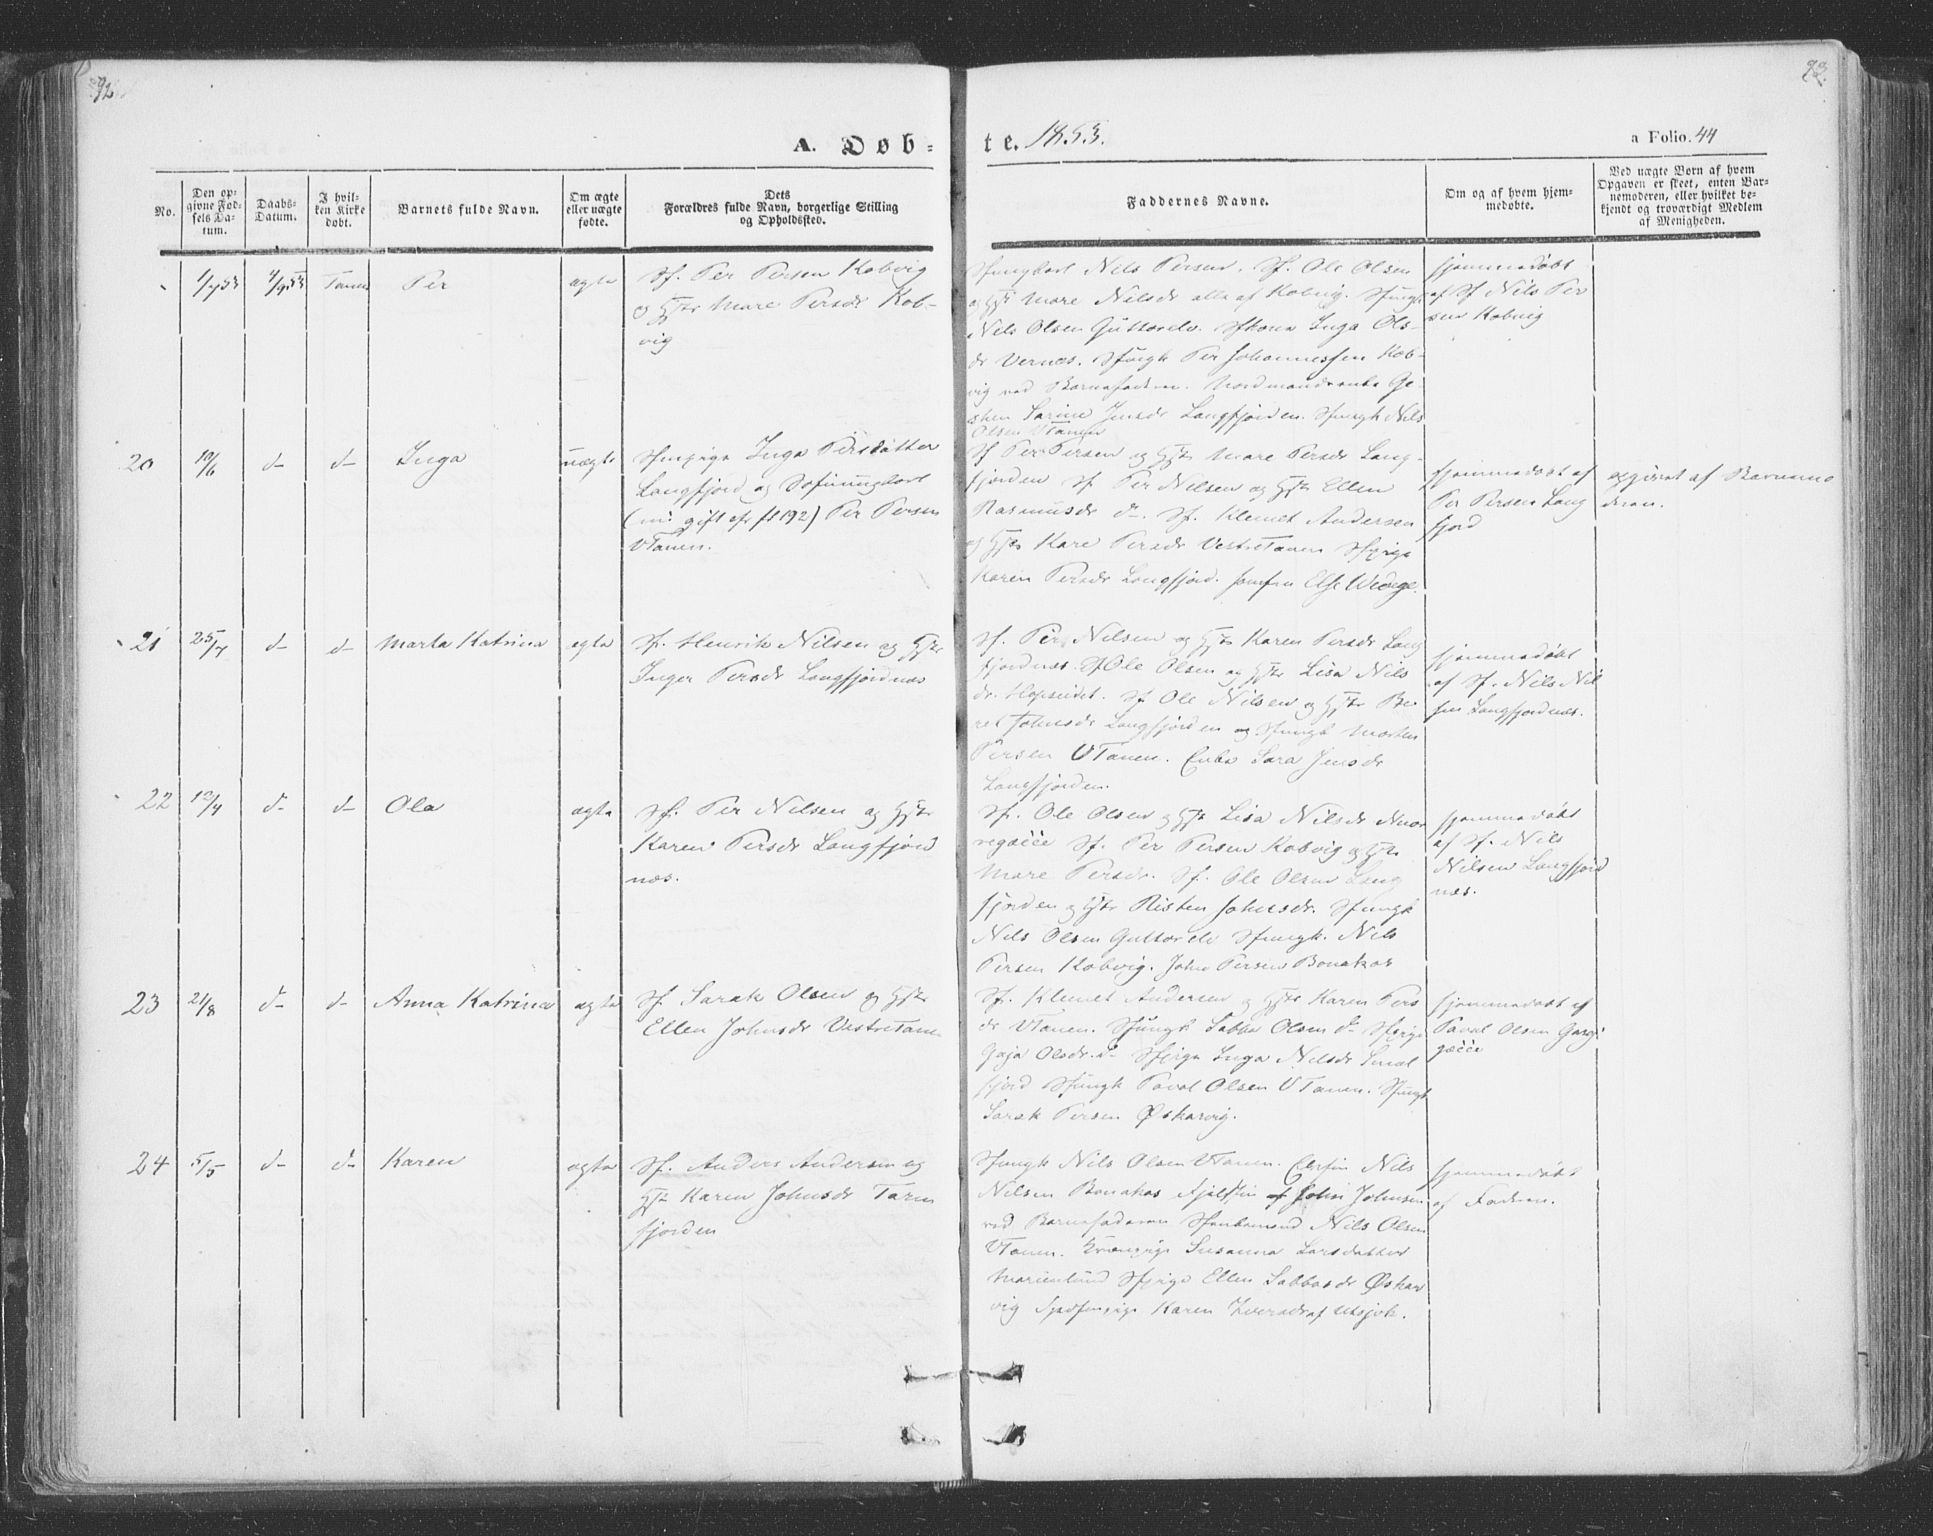 92
93.
A. Døb-
te. 1853.
a Folio. 44
No.
Den op-
givne Fød-
sels Da-
tum.
Daabs-
Datum.
I hvil-
ken Kirke
døbt.
Barnets fulde Navn.
Om ægte
eller uægte
fødte.
Dets
Forældres fulde Navn, borgerlige Stilling
og Opholdssted.
Faddernes Navne.
Om og af hvem hjem-
medøbte.
Ved uægte Børn af hvem
Opgaven er skeet, enten Bar-
nemoderen, eller hvilket be-
kjendt og troværdigt Medlem
af Menigheden.
Tanen
Per
ægte
Sf. Per Persen Kobvig
og Hstr Mare Persdr Kob-
vig
Nils Persen. Sf. Ole Olsen
og Hstr Mare Nilsdr alle af Kobvig.
Nils Olsen Guttorelv. Inga Ols-
dr Vernes. Sfungk Per Johannessen Kob-
vig ved Barnefaderen.
Sarine Jensdr Langfjorden. Sfungk Nils
Olsen VTanen
hjemmedøbt
af Sf Nils Per
sen Kobvig
20
10/6
d-
d-
Inga
uægte
Inga Persdatter
Langfjord og
gift Per Persen
VTanen.
Sf Per Persen og Hstr Mare Persdr Lang-
fjorden Sf. Per Nilsen og Hstr Ellen
Rasmusdr d-. Sf. Klemet Andersen
og Hstr Kare Persdr VestreTanen
Karen Persdr Langfjord. Else
hjemmedøbt af
Per Persen Lang
fjord
opgivet af Barnemo
deren.
21
25/7
d-
d-
Marta Katrina
ægte
Sf. Henrik Nilsen og Hstr
Inger Persdr Langfjordnæs
Sf. Per Nilsen og Hstr Karen Persdr Lang
fjordnæs. Sf Ole Olsen og Hstr Lisa Nils
dr. Hopseidet. Sf Ole Nilsen og Hstr Be
ret Johnsdr Langfjorden og Sfungk Morten
Persen VTanen. Enke Sara Jensdr
Langfjorden.
hjemmedøbt
af Sf. Nils Nil
sen Langfjordnæs.
22
12/4
d-
d-
Ola
ægte
Sf. Per Nilsen og Hstr
Karen Persdr Langfjord
næs.
Sf. Ole Olsen og Hstr Lisa Nilsdr
Sf. Per Persen Kobvig og Hstr
Mare Persdr. Sf. Ole Olsen Lang
fjorden og Hstr Risten Johnsdr. Sfungk
Nils Olsen Guttorelv Sfungk. Nils
Persen Kobvig. John Persen Bonakas
hjemmedøbt
af Sf. Nils
Nilsen Langfjord
næs.
23
21/8
d-
d-
Anna Katrina
ægte
Sf. Sarak Olsen og Hstr
Ellen Johnsdr VestreTanen
Sf. Klemet Andersen og Hstr Karen Pers
dr VTanen. Sfungk Sabba Olsen d-
Gaja Olsdr. d- Inga Nilsdr Smal
fjord Sfungk Paval Olsen VTanen. Sfungk
Sarak Persen Øskarvig.
hjemmedøbt af
Paval Olsen
24
5/5
d-
d-
Karen
ægte
Sf. Anders Andersen og
Hstr Karen Johnsdr Tana
fjorden
Sfungk Nils Olsen VTanen. Nils
Nilsen Bonakas John Johnsen
ved Barnefaderen Nils Olsen
VTanen. Susanna Larsdatter
Marienlund Ellen Sabbasdr Øskar
vig Karen Iversdr af Utsjok.
hjemmedøbt
af Faderen.